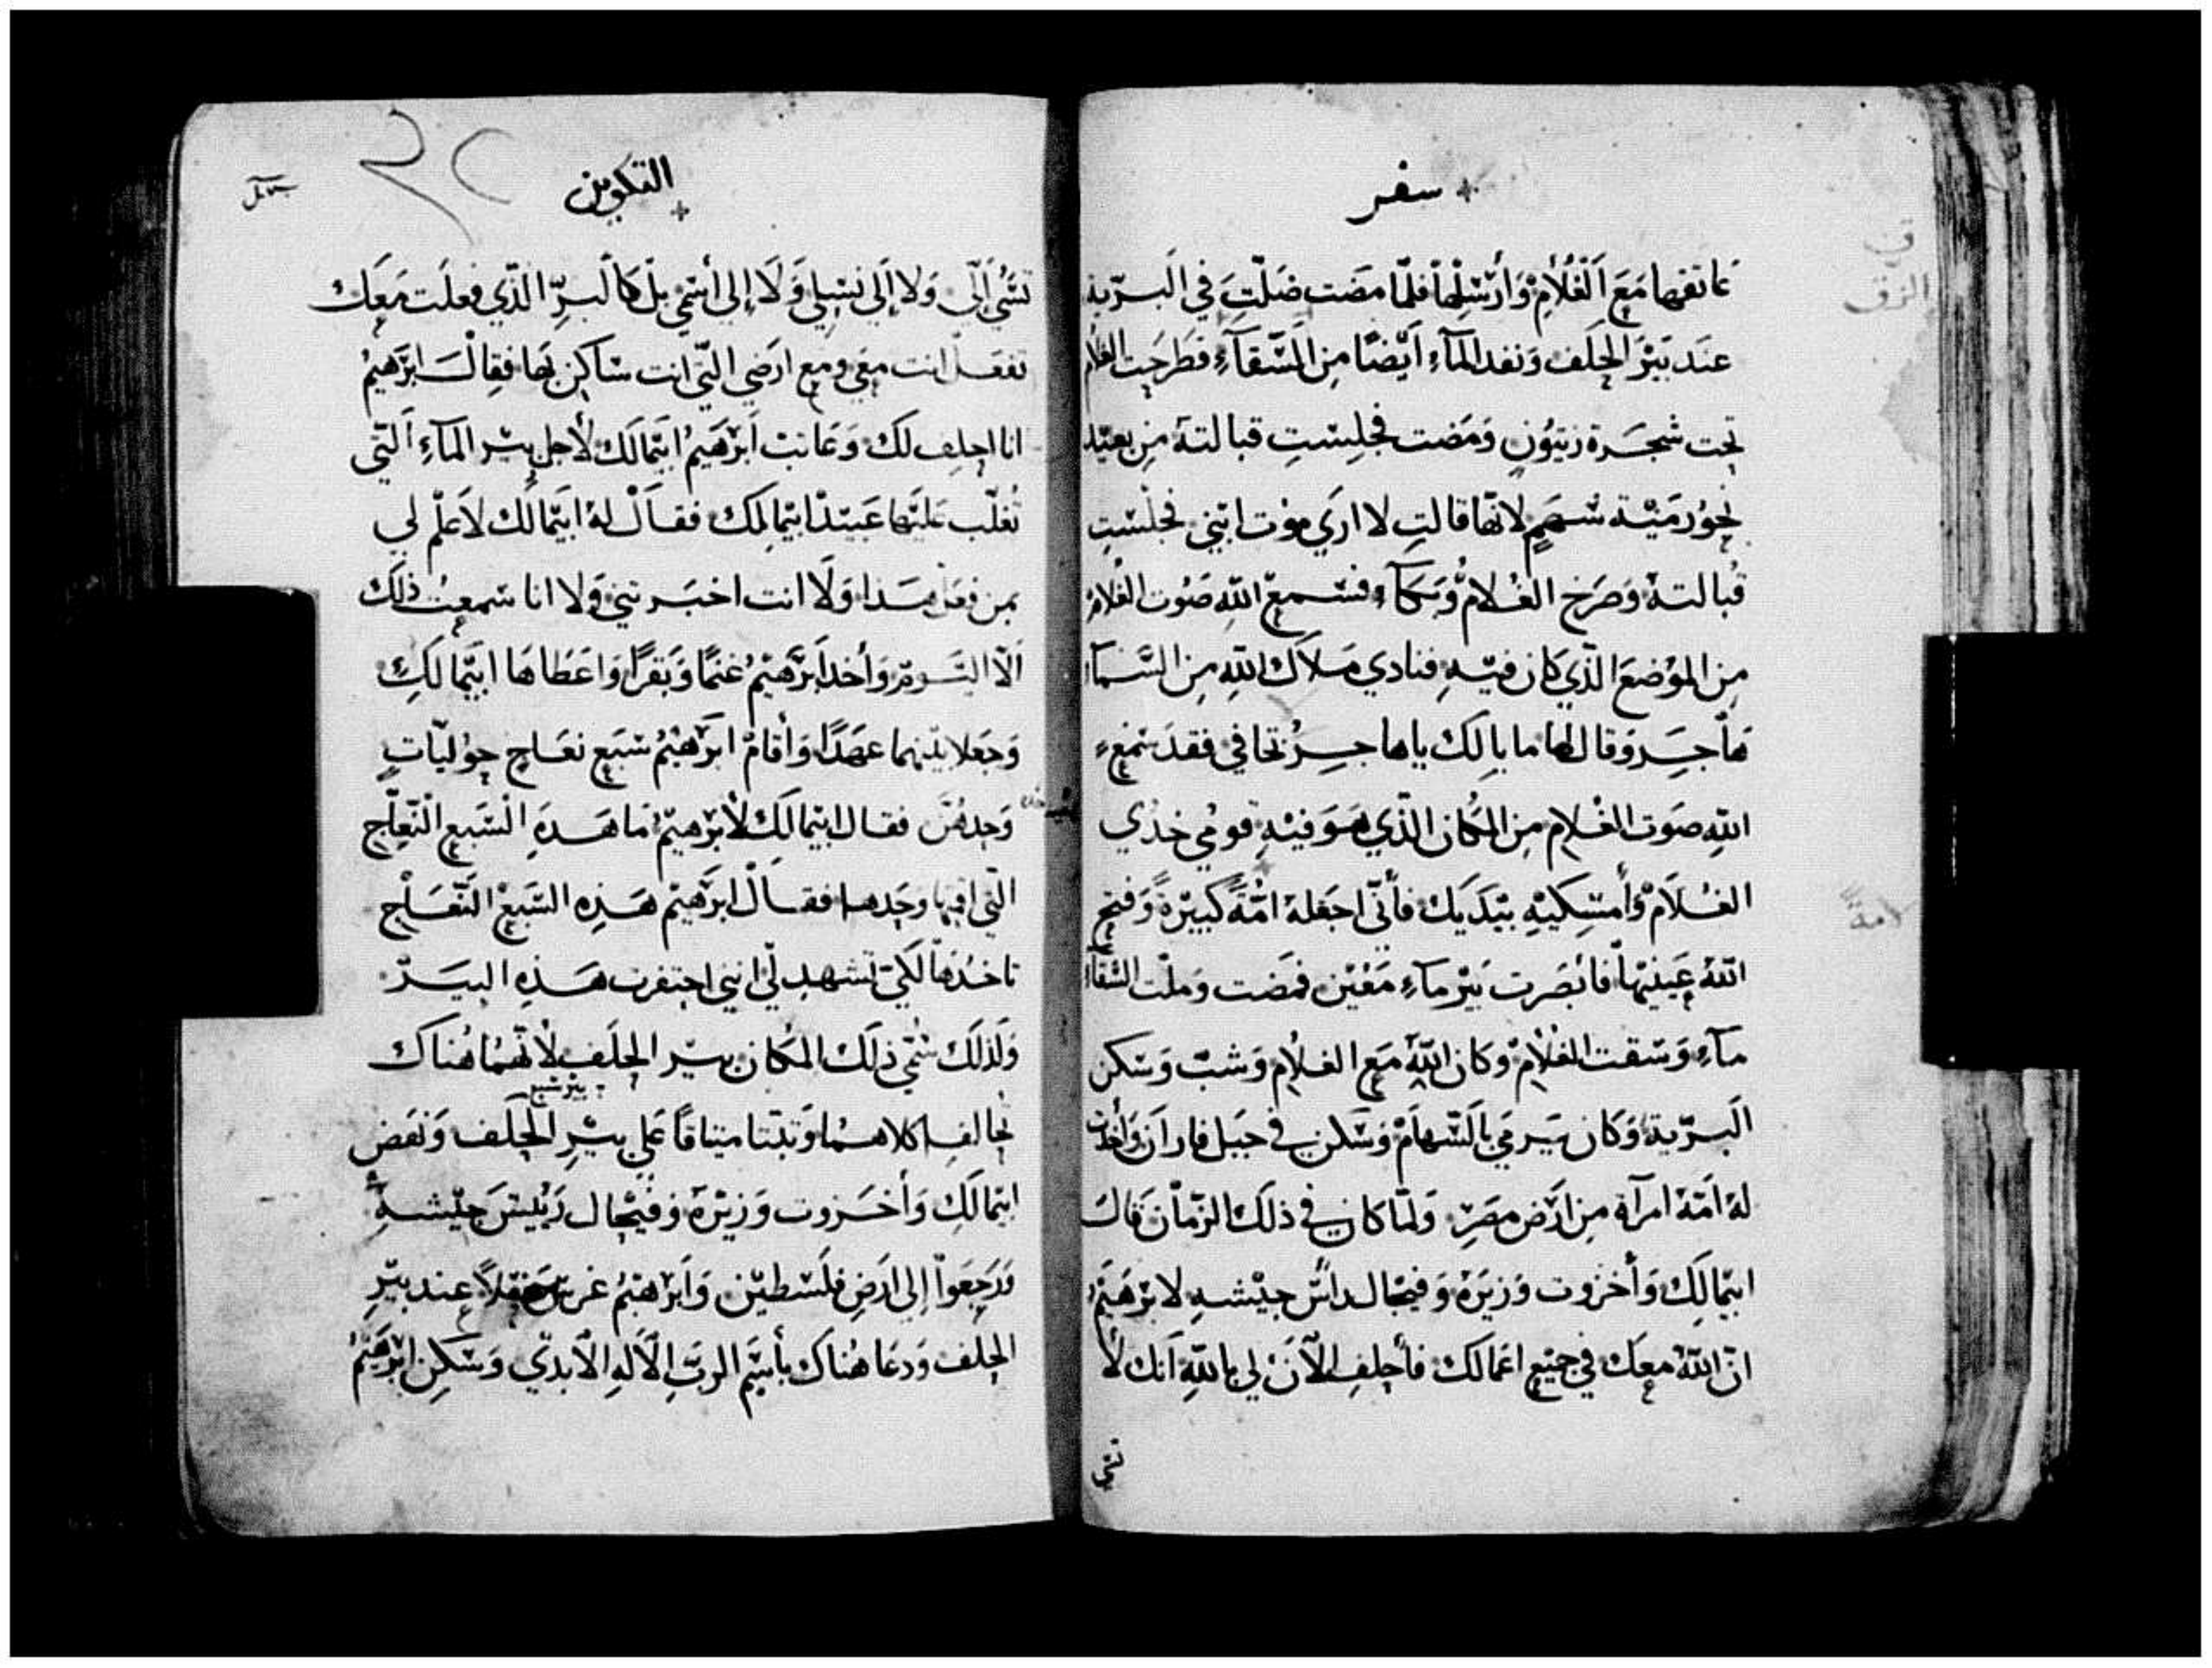 سفر
عاتقها مَعَ اَلْغُلَامِ وَأَرْسَلَهَا فلمّا مضَت ضَلّتَ في البَرّية
عند بَيْرَ الحِلَف وَنفد المآءِ اَيْضًا مِن السَّقآءِ فطَرحَت الغلام
تحت شجَرة زيتُونٍ وَمَضت فجلسَتِ قبالتهَ مِن بعيْد
نحوُ رَميْة سَهمٍ لانّها قالتِ لا ارَي موْت ابْني فجلسَتِ
قُبالتهُ وَصَرَخ الغُلامُ وَبَكآءِ فسَمعَ اللهِ صَوُت الغُلامِ
مِن الموْضعَ الّذي كان فيْهِ فنادي مَلاَك اللهِ مِن السّمآء
هآجَرِ وَقال لها ما بالِك ياهاجِرُ تخافي فقدَ سَمعِ
اللهِ صَوَت الغُلامِ مِن المكَان الّذي هَو فيْهِ قومُي خذُي
الغُلاَمْ وَأمسِكيْهِ بيَدَيكِ فأنّي اجعَلهُ امّةً كبيْرةً وَفتح
اللهُ عَينيْهاَ فابْصَرت بَيْر مآءِ مَعْين فمَضت وَملّت السّقآ
مآءِ وَسَقت الغُلامْ وكان اللهُ مَع الغُلامِ وَشبّ وَسَكن
البَرّية وَكان يَرمَي بالسّهامْ وَسَكن في جبَل فاراَن وَأخذت
لهُ اَمّهُ امرآة مِن ارَض مصَرِ وَلمّا كان في ذلَك الزّمان قال
ابيمالِك وَأخزوت وَزيرَهُ وَفيْجال رأسّ جيْشهِ لابرْهَيمُ
انّ اللهَ معِكَ في جميْعِ اعَمالكَ فأحِلفِ الآن لي باللهِ اَنك لا
تسَي
التكوين
تسَّي اَلَّي وَلا اِلَي نسَلي وَلَا إلي أسَمي بلْ كاَلبرِّ الّذي فعلَت مَعَك
تفعَل انت معَي ومع ارَضي الّتي انت سَاكن بَها فقالَ ابَرَهيمُ
انا احلِف لكَ وَعَاتبَ اَبْرَهيمُ ابَيمالَك لأجلِ بيْر المآءِ اَلّتي
تُغلّب عَليْها عَبيْد ابيمالِك فقالْ لهُ ابيمالك لاَ عَلمْ لي
بمِن فعَل هَذا وَلَا انت اخبَرتني وَلا انا سَمعِت ذلَك
اَلاّ اليَومْ وَأخد اَبَرَهيمُ غنمًا وَبَقرًا وَاعَطاهَا ابيمالَكِ
وَجَعلا بيْنهما عهَدًا وَأقامْ ابَرَهيْمُ سَبعِ نعَاج حِوُليّاتٍ
وَحدهُنّ فقال ابيمالَك لأبرْهيْمُ مَا هَذهِ السّبعِ النّعاجِ
الّتي اقمتها وحَدها فقالْ ابرَهيْم هَذِهِ السّبَعْ النّعَاجِ
تاخدُهَا لكَي تشهدِ لّي انيّ احتفرت هَذهِ البيَرّ
وَلذلَك سُمّي ذلَك المَكان بيرّ الحِلَف لأنّهُما هُناك
بير سَبع
تحَالفِا كلاهُما وَتبتا ميتاقاً عَلي بيْرِ الحِلَف وَنهَض
ابيمَالَكِ وَأخَزوت وَزيْرَهُ وَفيْجال رَئيسَ جيْشهِ
وَرَجعوَا إلي ارَضِ فلَسَطيّن وَاَبْرَهيْمُ غرسَ حَقلاً عند بيْرِ
الحِلف وَدعَا هُناك بأسَمِ الربَّ اِلاَلَهِ اِلآبديّ وَسَكن اِبْرَهَيْمُ